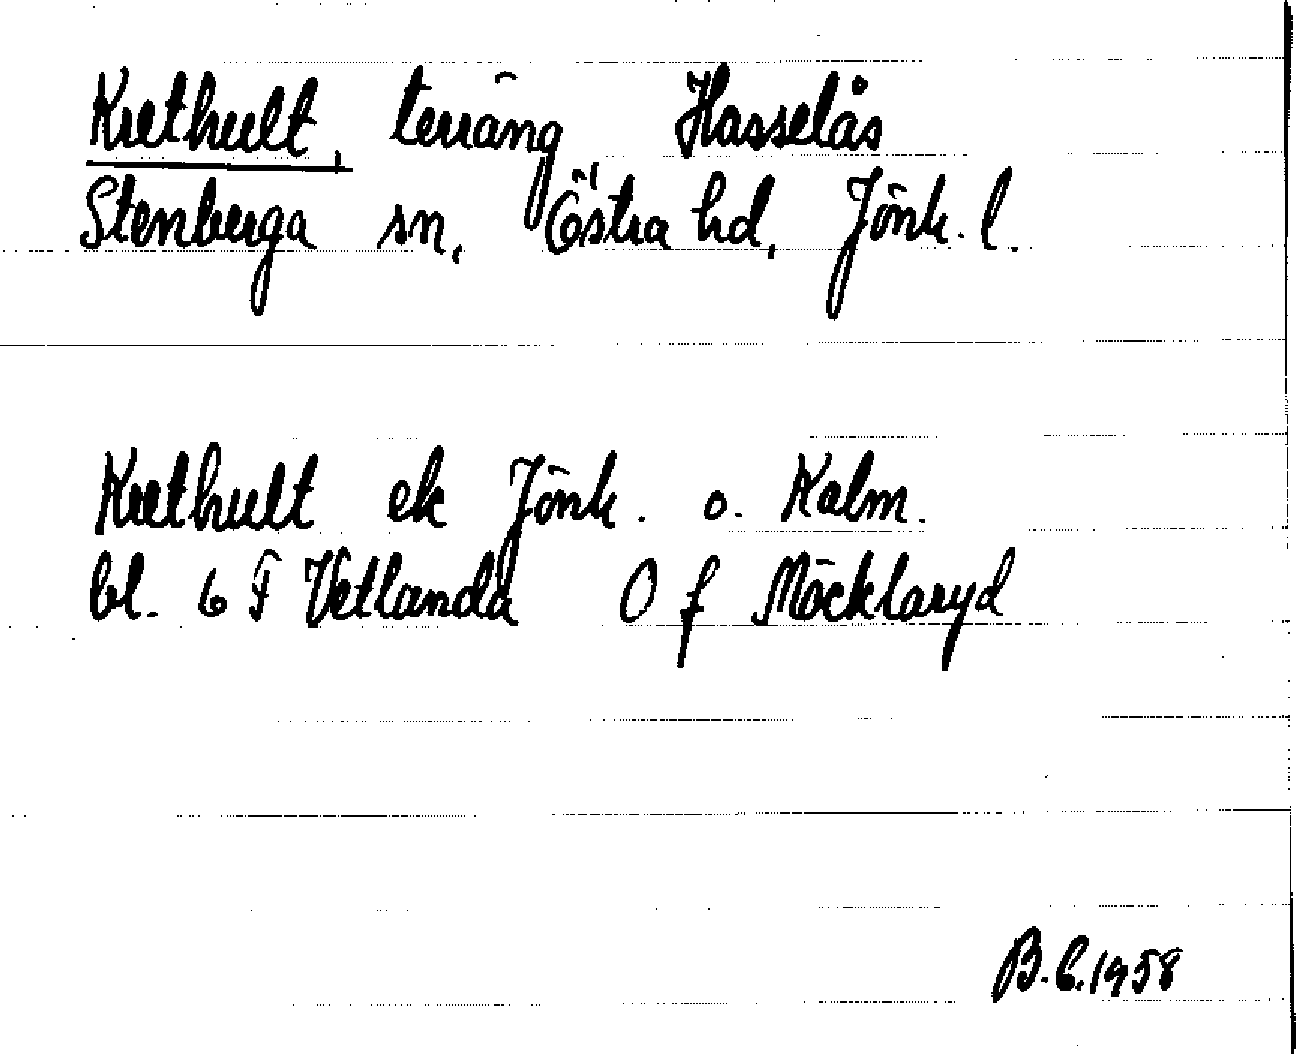 Krethult, terräng Hasselås
Stenberga sn, Östra hd, Jönk. l.
Krethult ek Jönk. o. Kalm.
bl. 6 F Vetlanda O f Möcklaryd
B.C. 1958